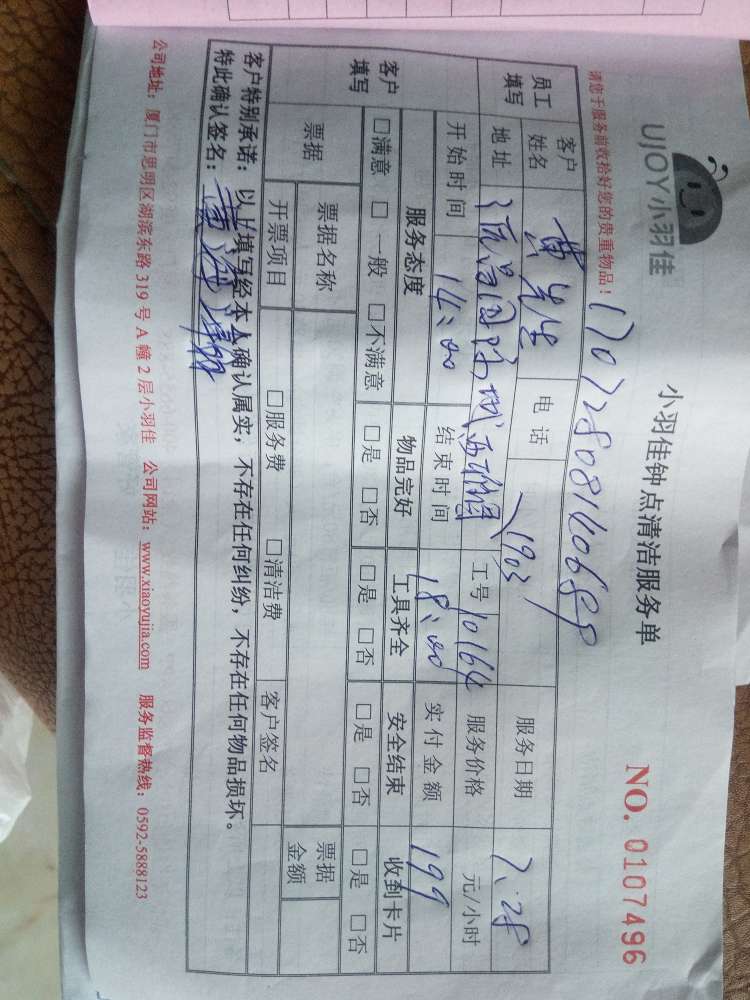 UJOY小羽佳
小羽佳钟点清洁服务单
NO. 0107496
请您于服务前收拾好您的贵重物品！
员工填写
客户姓名 黄先生 电话 服务日期 7.28
地址 1903
工号 10164 服务价格 元/小时
开始时间 14:00 结束时间 18:00 实付金额 199
客户填写
服务态度 物品完好 工具齐全 安全结束 收到卡片
□满意 □一般 □不满意 □是 □否 □是 □否 □是 □否 □是 □否
票据 票据名称 票据金额
开票项目 □服务费 □清洁费 客户签名
客户特别承诺：以上填写经本人确认属实，不存在任何纠纷，不存在任何物品损坏。
特此确认签名：
公司地址：厦门市思明区湖滨东路 319 号 A 幢 2 层小羽佳 公司网站：www.xiaoyujia.com 服务监督热线：0592-5888123